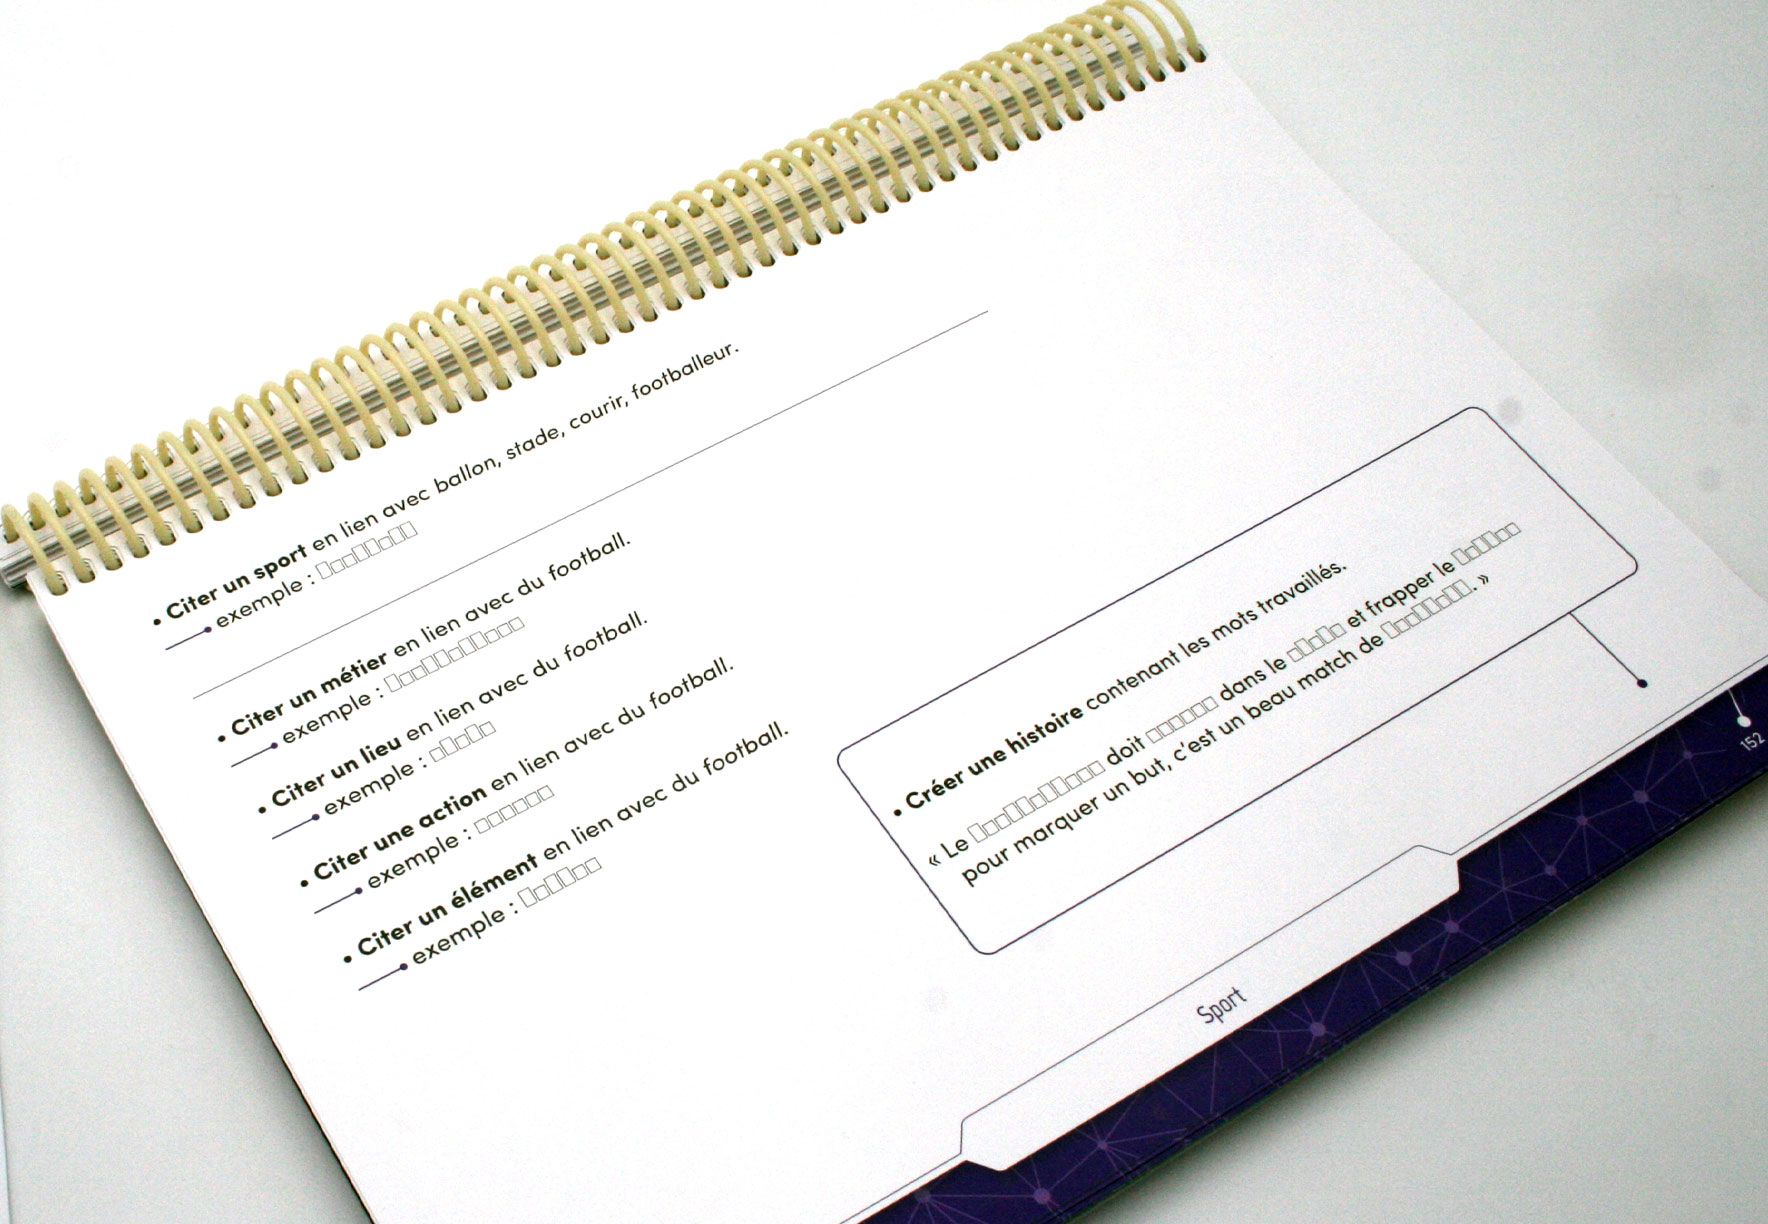 • Citer un sport en lien avec ballon, stade, courir, footballeur.
exemple : ▯▯▯▯▯▯▯▯
• Citer un métier en lien avec du football.
exemple : ▯▯▯▯▯▯▯▯▯▯▯
• Citer un lieu en lien avec du football.
exemple : ▯▯▯▯▯
• Citer une action en lien avec du football.
exemple : ▯▯▯▯▯▯
• Citer un élément en lien avec du football.
exemple : ▯▯▯▯▯▯
• Créer une histoire contenant les mots travaillés.
« Le ▯▯▯▯▯▯▯▯▯▯▯ doit ▯▯▯▯▯▯ dans le ▯▯▯▯▯ et frapper le ▯▯▯▯▯▯
pour marquer un but, c'est un beau match de ▯▯▯▯▯▯▯▯. »
Sport
152